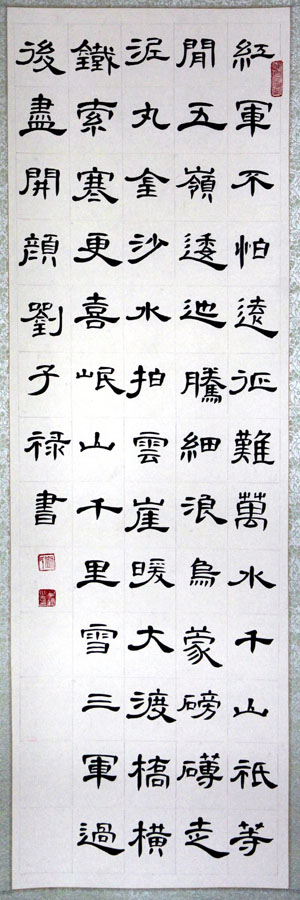 紅軍不怕遠征難萬水千山祇等
閒五嶺逶迆騰細浪烏蒙磅礴走
泥丸金沙水拍雲崖暖大渡橋橫
鐵索寒更喜岷山千里雪三軍過
後盡開顏劉子祿書